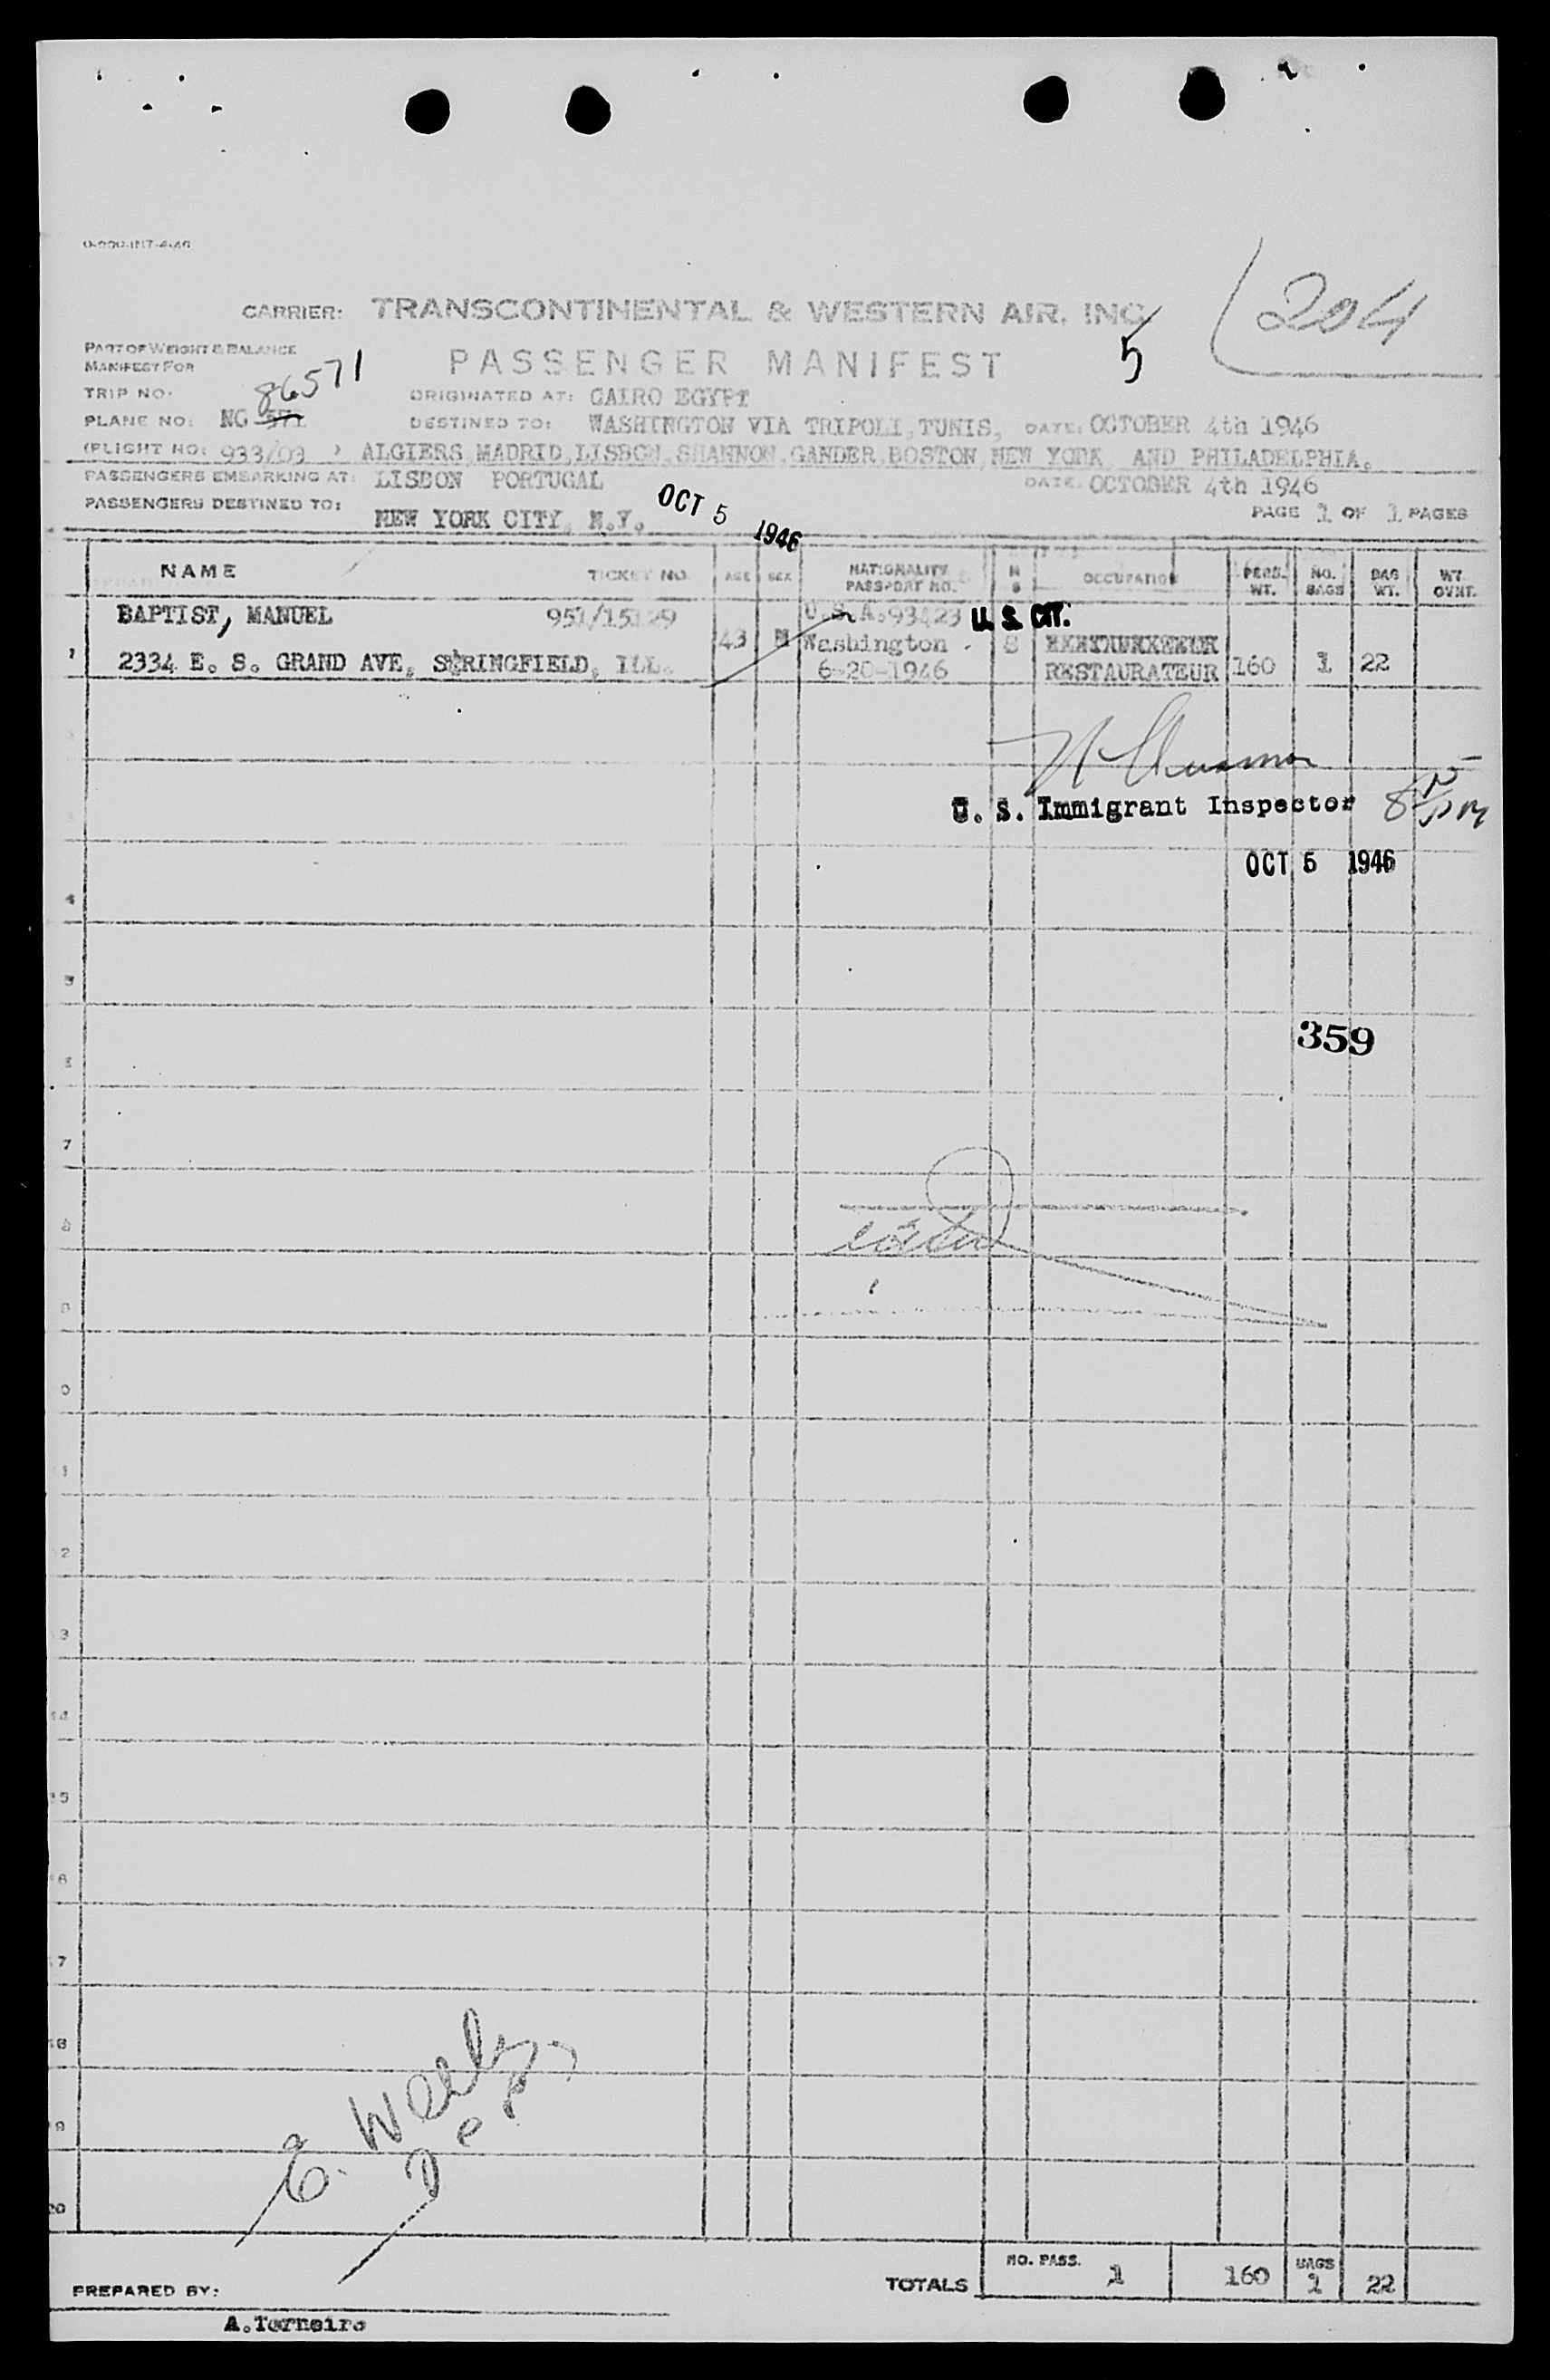 CARRIER: TRANSCONTINENTAL & WESTERN AIR, INC
204
5
PART OF WEIGHT & BALANCE
MANIFEST FOR
PASSENGER MANIFEST
TRIP NO. 86571
ORIGINATED AT: CAIRO EGYPT
PLANE NO: NC 571
DESTINED TO: WASHINGTON VIA TRIPOLI, TUNIS, DATE: OCTOBER 4th 1946
(FLIGHT NO: 933/03 ) ALGIERS, MADRID, LISBON, SHANNON, GANDER, BOSTON, NEW YORK AND PHILADELPHIA.
PASSENGERS EMBARKING AT: LISBON PORTUGAL DATE: OCTOBER 4th 1946
PASSENGERS DESTINED TO: NEW YORK CITY, N.Y. OCT 5 1946 PAGE 1 OF 1 PAGES
NAME TICKET NO. AGE SEX NATIONALITY PASSPORT NO. M S OCCUPATION PERS. WT. NO. BAGS BAG WT. WT. OVNT.
BAPTIST, MANUEL 951/15129 U.S.A. 93423 U. S. CIT.
43 M Washington S
1 2334 E. S. GRAND AVE, SPRINGFIELD, ILL. 6-20-1946 RESTAURATEUR 160 1 22
U. S. Immigrant Inspector
OCT 5 1946
4
5
359
7
2
3
14
15
6
7
18
9
20
TOTALS NO. PASS. 1 160 BAGS 1 22
PREPARED BY:
A.Torneiro